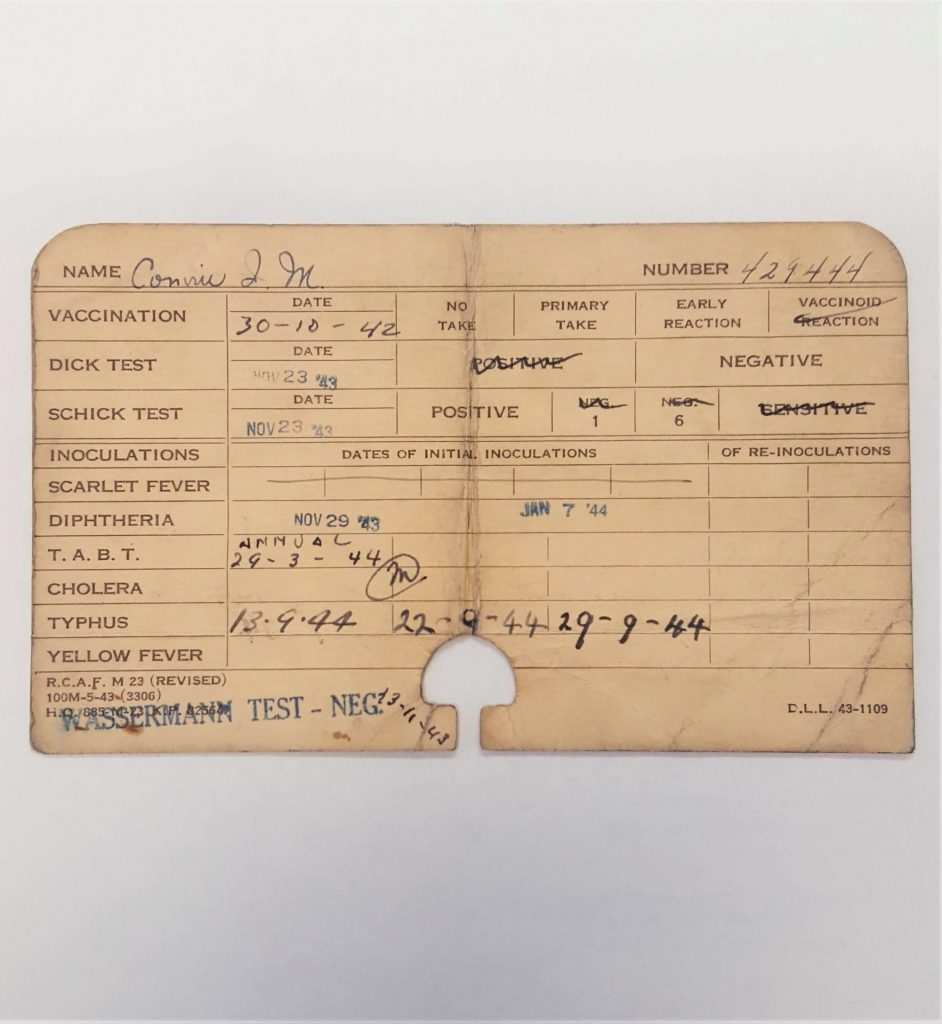 NAME Connie I. M. NUMBER 429444
VACCINATION DATE NO TAKE PRIMARY TAKE EARLY REACTION VACCINOID REACTION
30-10-42
DICK TEST DATE POSITIVE NEGATIVE
NOV 23 '43
SCHICK TEST DATE POSITIVE NEG. 1 NEG. 6 SENSITIVE
NOV 23 '43
INOCULATIONS DATES OF INITIAL INOCULATIONS OF RE-INOCULATIONS
SCARLET FEVER
DIPHTHERIA NOV 29 '43 JAN 7 '44
ANNUAL
T. A. B. T. 29-3-44 M
CHOLERA
TYPHUS 13.9.44 22-9-44 29-9-44
YELLOW FEVER
R.C.A.F. M 23 (REVISED)
100M-5-43 (3306)
H.Q. 885-M-23
WASSERMANN TEST - NEG. 13-11-43
D.L.L. 43-1109